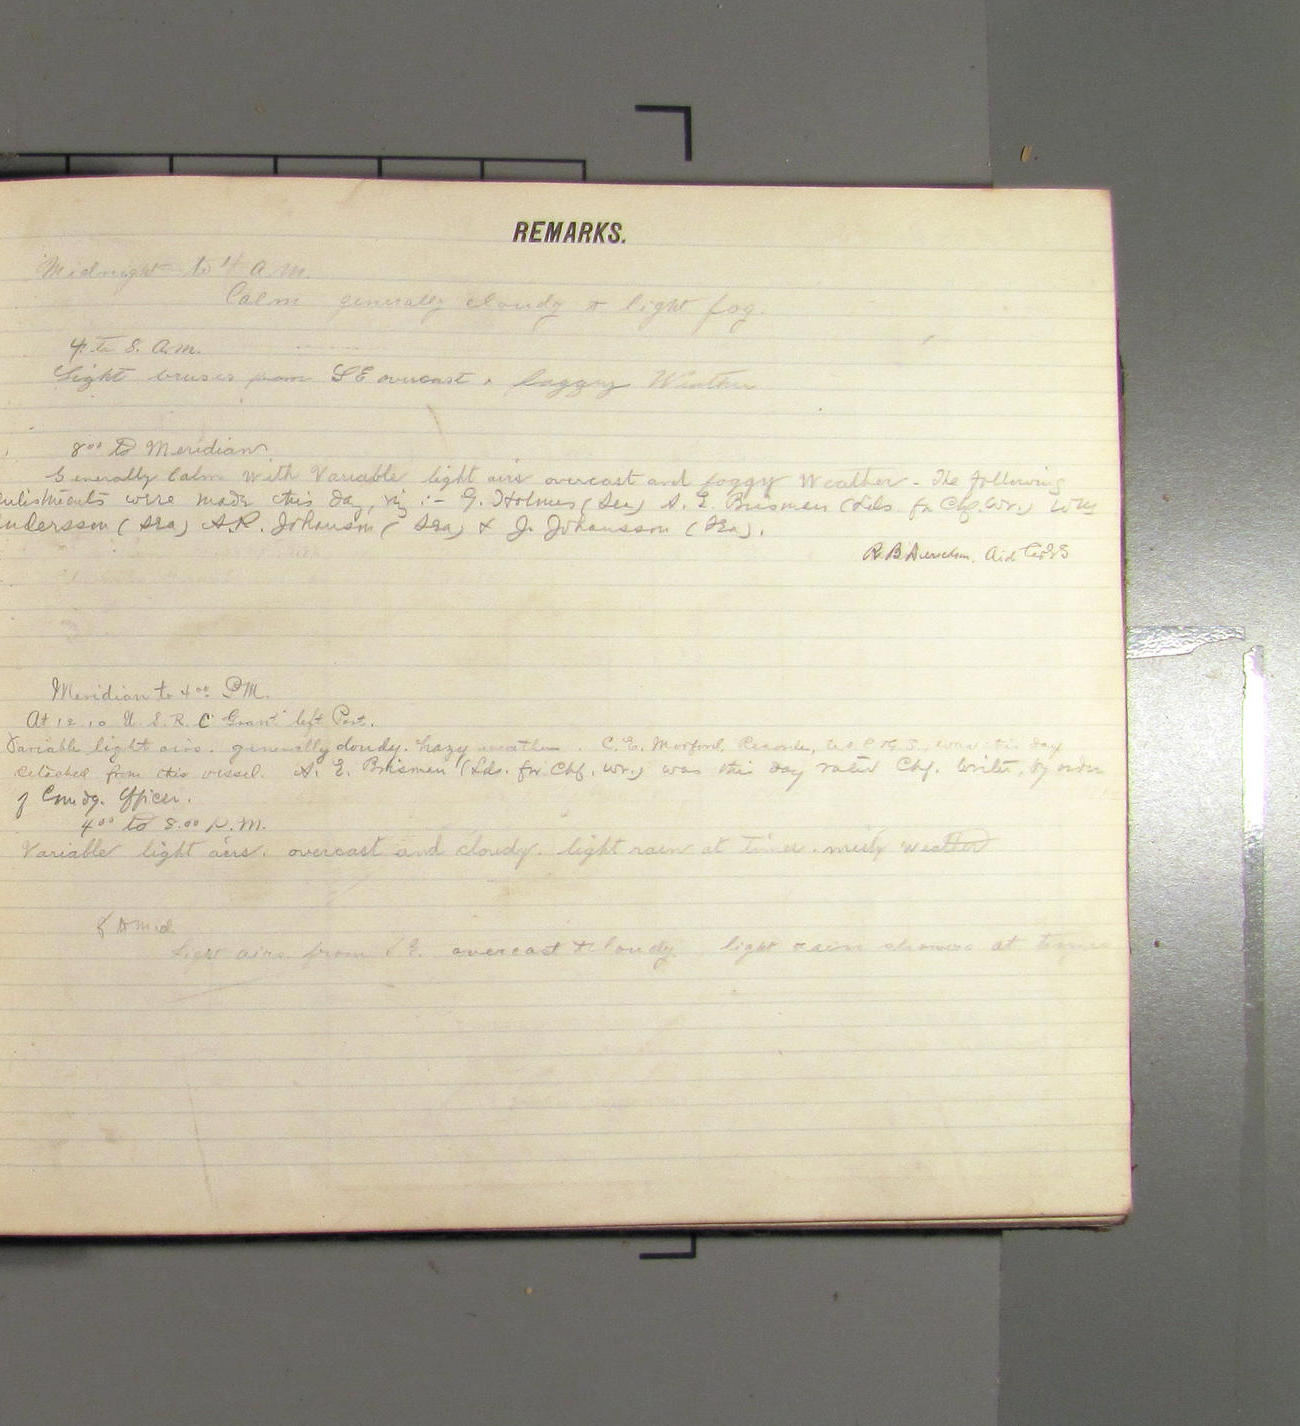 REMARKS.
Midnight to 4 a.m.
Calm generally cloudy & light fog.
4 to 8. a.m.
Light from SE overcast & foggy Weather
8⁰⁰ to Meridian
Generally Calm with Variable light airs overcast and foggy Weather - The following
enlistments were made this day, viz :- G. Holmes (Sea) A. E. Brismen (Lds. for Chf. Wr.) Wm
Andersson (Sea) A.R. Johanson (Sea) & J. Johansson (Sea).
R B Aid C&GS
Meridian to 4⁰⁰ P.M.
At 12.10 U.S.R.C Grant left Port.
Variable light airs. generally cloudy. hazy weather. C. E. Morford, Recorder, U.S.C.&G.S., was this day
detached from this vessel. A. E. Brismen (Lds. for Chf. Wr.) was this day rated Chf. Writer, by order
of Comdg. Officer.
4⁰⁰ to 8.00 P.M.
Variable light airs. overcast and cloudy. light rain at times. misty weather
8 to Mid
Light airs from SE. overcast & cloudy. light rain showers at times